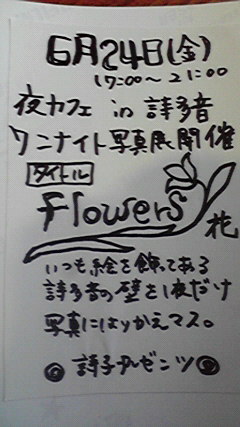 6月24日(金)
17:00〜21:00
夜カフェ in 詩多音
ワンナイト写真展開催
タイトル
Flowers
花
いつも絵を飾ってある
詩多音の壁を1夜だけ
写真にはりかえマス。
◎ 詩子プレゼンツ ◎